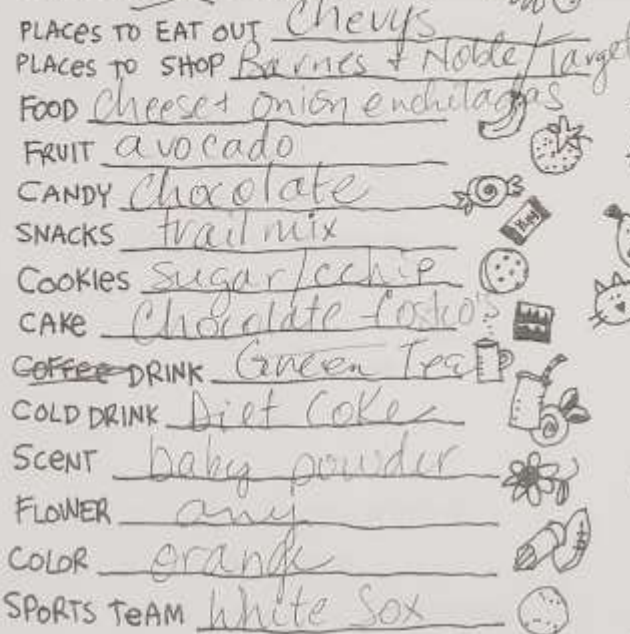 PLACES TO EAT OUT Chevys
PLACES TO SHOP Barnes + Noble/Target
FOOD cheese + onion enchiladas
FRUIT avocado
CANDY Chocolate
SNACKS trail mix
COOKIES sugar/cchip
CAKE Chocolate Costco's
COFFEE DRINK Green Tea
COLD DRINK Diet Coke
SCENT baby powder
FLOWER any
COLOR orange
SPORTS TEAM White Sox